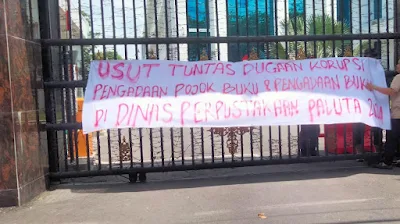 USUT TUNTAS DUGAAN KORUPSI
PENGADAAN POJOK BUKU & PENGADAAN BUKU
DI DINAS PERPUSTAKAAN PALUTA